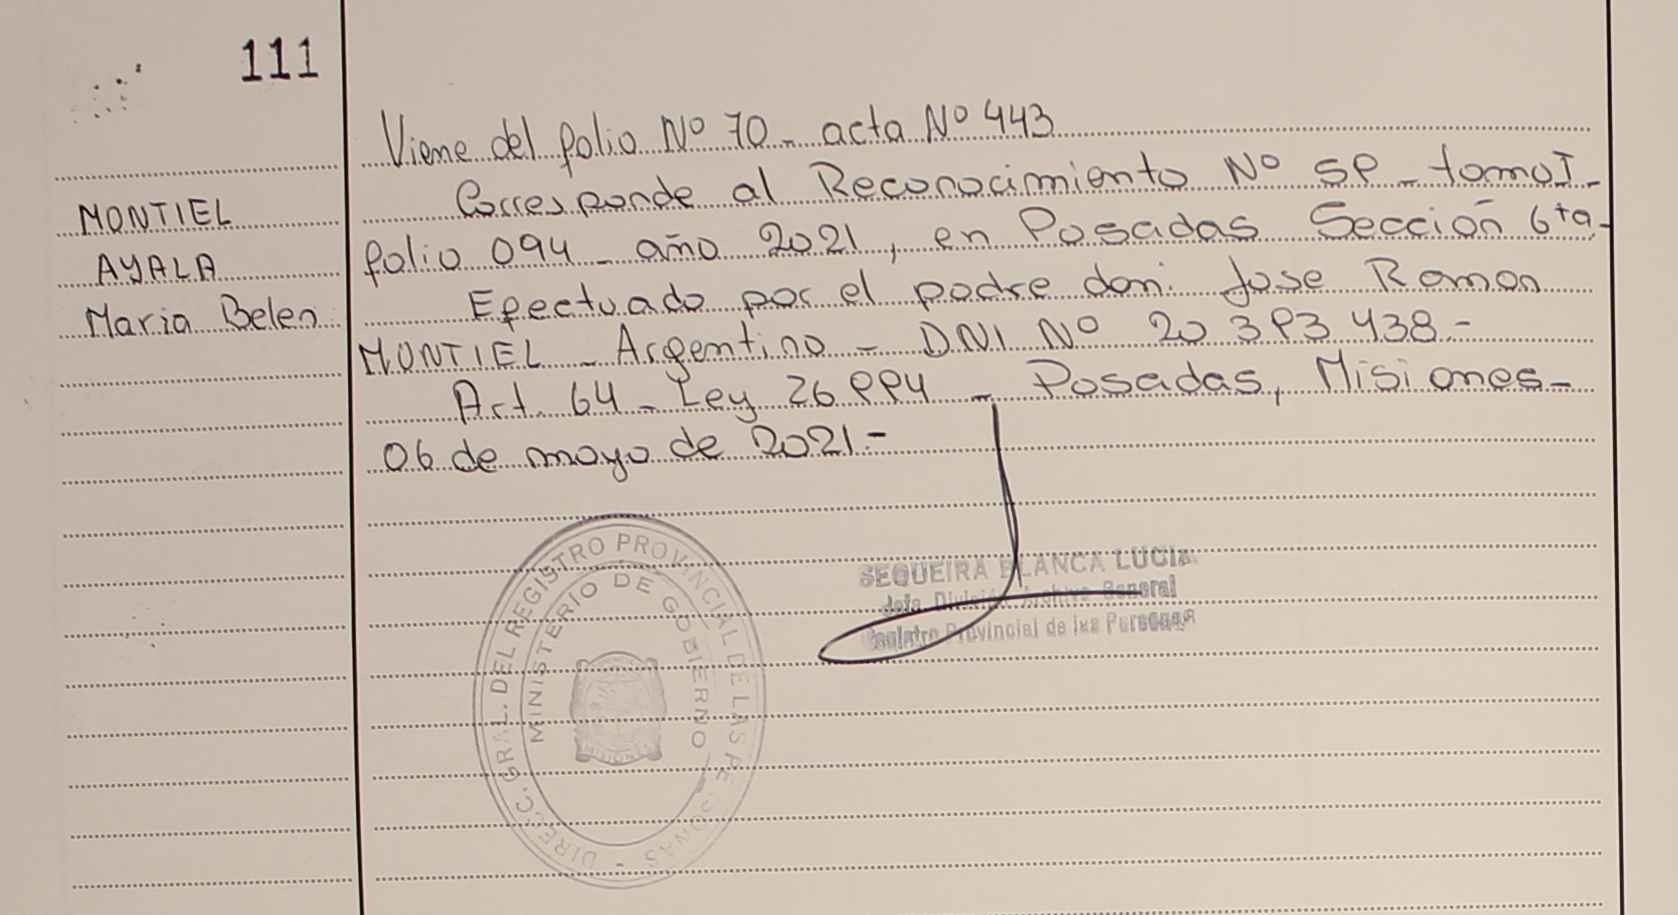 111
Viene del folio Nº 70 - acta Nº 443
Corresponde al Reconocimiento Nº 59 - tomo I -
folio 094 - año 2021, en Posadas Sección 6ta -
Efectuado por el padre don: Jose Ramon
MONTIEL - Argentino - DNI Nº 20 393 438.-
Art. 64 - Ley 26 994 - Posadas, Misiones -
06 de mayo de 2021.-
MONTIEL
AYALA
Maria Belen
SEQUEIRA BLANCA LUCIA
Jefa División Archivo General
Registro Provincial de las Personas
DIRECC. GRAL. DEL REGISTRO PROVINCIAL DE LAS PERSONAS -
MINISTERIO DE GOBIERNO
MISIONES